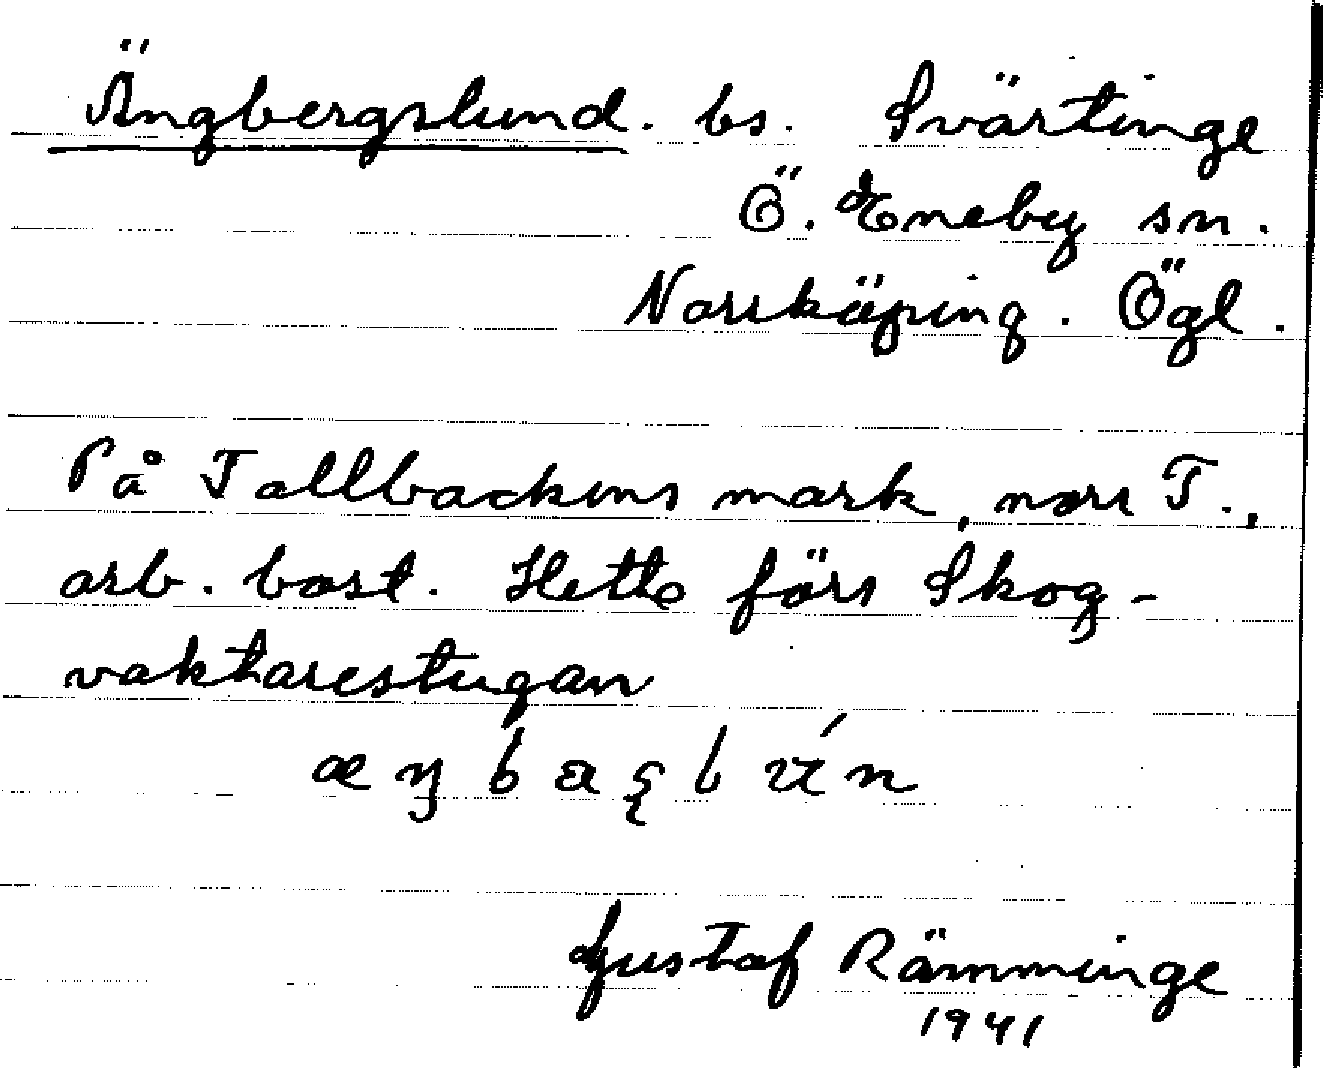 Ängbergslund. bs. Svärtinge
Ö. Eneby sn.
Norrköping. Ögl.
På Tallbackens mark, norr T.,
arb. bost. Hette förs Skog-
vaktarestugan
Gustaf Rämminge
1941